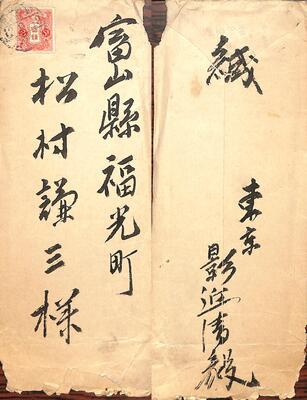 富山縣福光町
松村謙三様
緘
東京
影近清毅